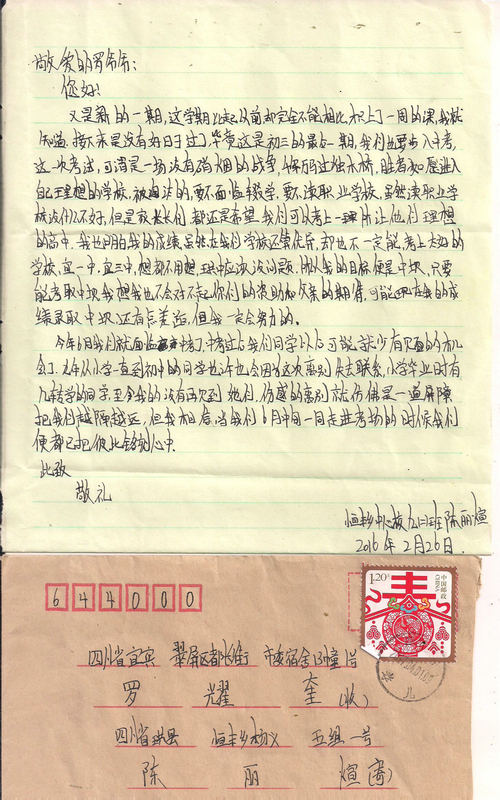 敬爱的罗爷爷：
您好！
又是新的一期，这学期比起以前却完全不能相比，积上了一周的课，我就
知道 接下来是没有好日子过了，毕竟这是初三的最后一期，我们也要步入中考，
这一次考试，可谓是一场没有硝烟的战争，千军万马过独木桥，胜者如愿进入
自己理想的学校，被淘汰的，要不面临辍学，要不读职业学校，虽然读职业学
校没什么不好，但是家长们都还是希望我们可以考上一所让他们理想
的高中，我也明白我的成绩虽然在我们学校还算优异，却也不一定能考上太好的
学校，宜一中，宜三中，想都不用想，珙中应该没问题，所以我的目标便是中坝，只要
能考取中坝我想我也不会对不起你们的资助和父亲的期待，可能现在我的成
绩录取中坝还有点差距，但我一定会努力的。
今年6月我们就面临中考了，中考过后我们同学以后可能就少有见面的机
会了，尤年从小学一直到初中的同学也许也会因为这次离别失去联系，小学毕业时有
几个转学的同学至今我的没有再次到她们，伤感的离别就仿佛是一道屏障
把我们越隔越远，但我相信，当我们6月中间一同走进考场的时候我们
便都已把彼此铭刻心中。
此致
敬礼
恒丰乡中心校九(二)班陈丽煊
2016年2月26日
644000
1.20元
中国邮政
CHINA
四川省宜宾 翠屏区都长街 市委宿舍13幢1号
罗 耀 奎（收）
四川省珙县 恒丰乡 五组一号
陈 丽 煊（寄）